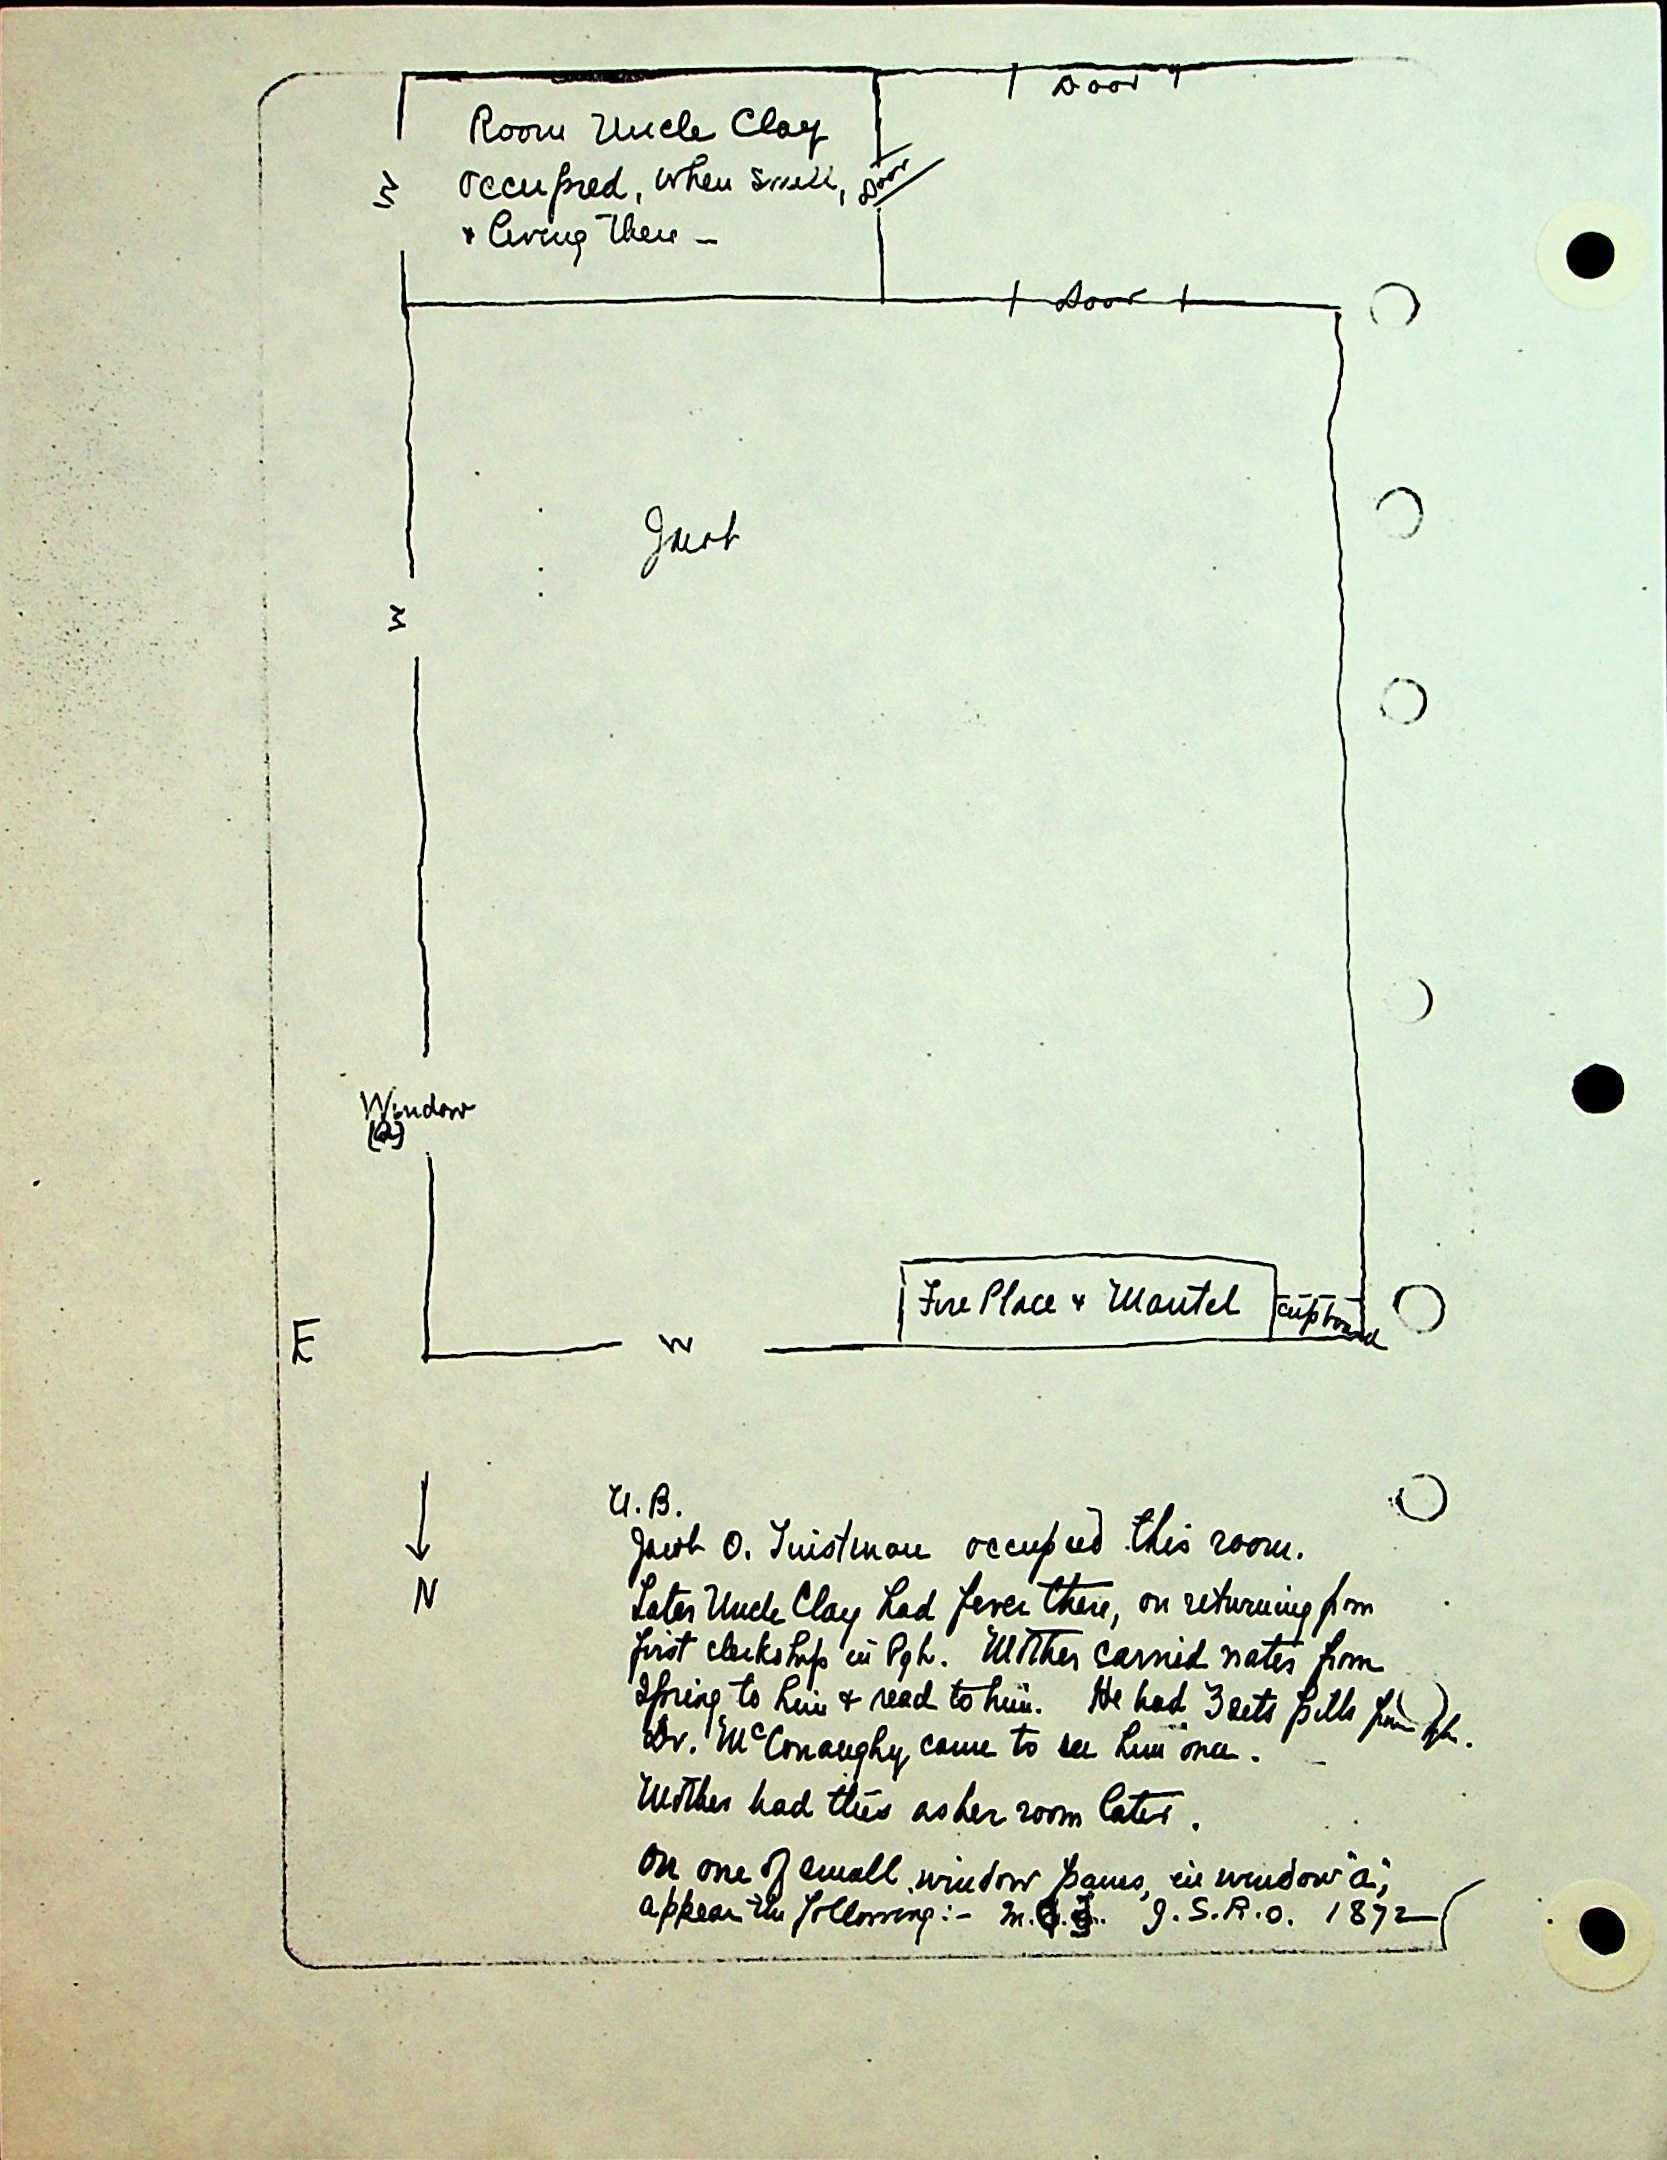 Door
Room Uncle Clay
occupied, when small, Door
W
& living there -
Door
Jacob
W
Window
(a)
Fire Place & Mantel
cupboard
E
W
N.B.
Jacob O. occupied this room.
N
Later Uncle Clay had fever there, on returning from
first clerkship in Pgh. Mother carried water from
Spring to him & read to him. He had 3 sets pills from Pgh.
Dr. McConaughy came to see him once.
Mother had this as her room later.
On one of small window panes, in window "a",
appear the following:- M. J.S.R.O. 1872